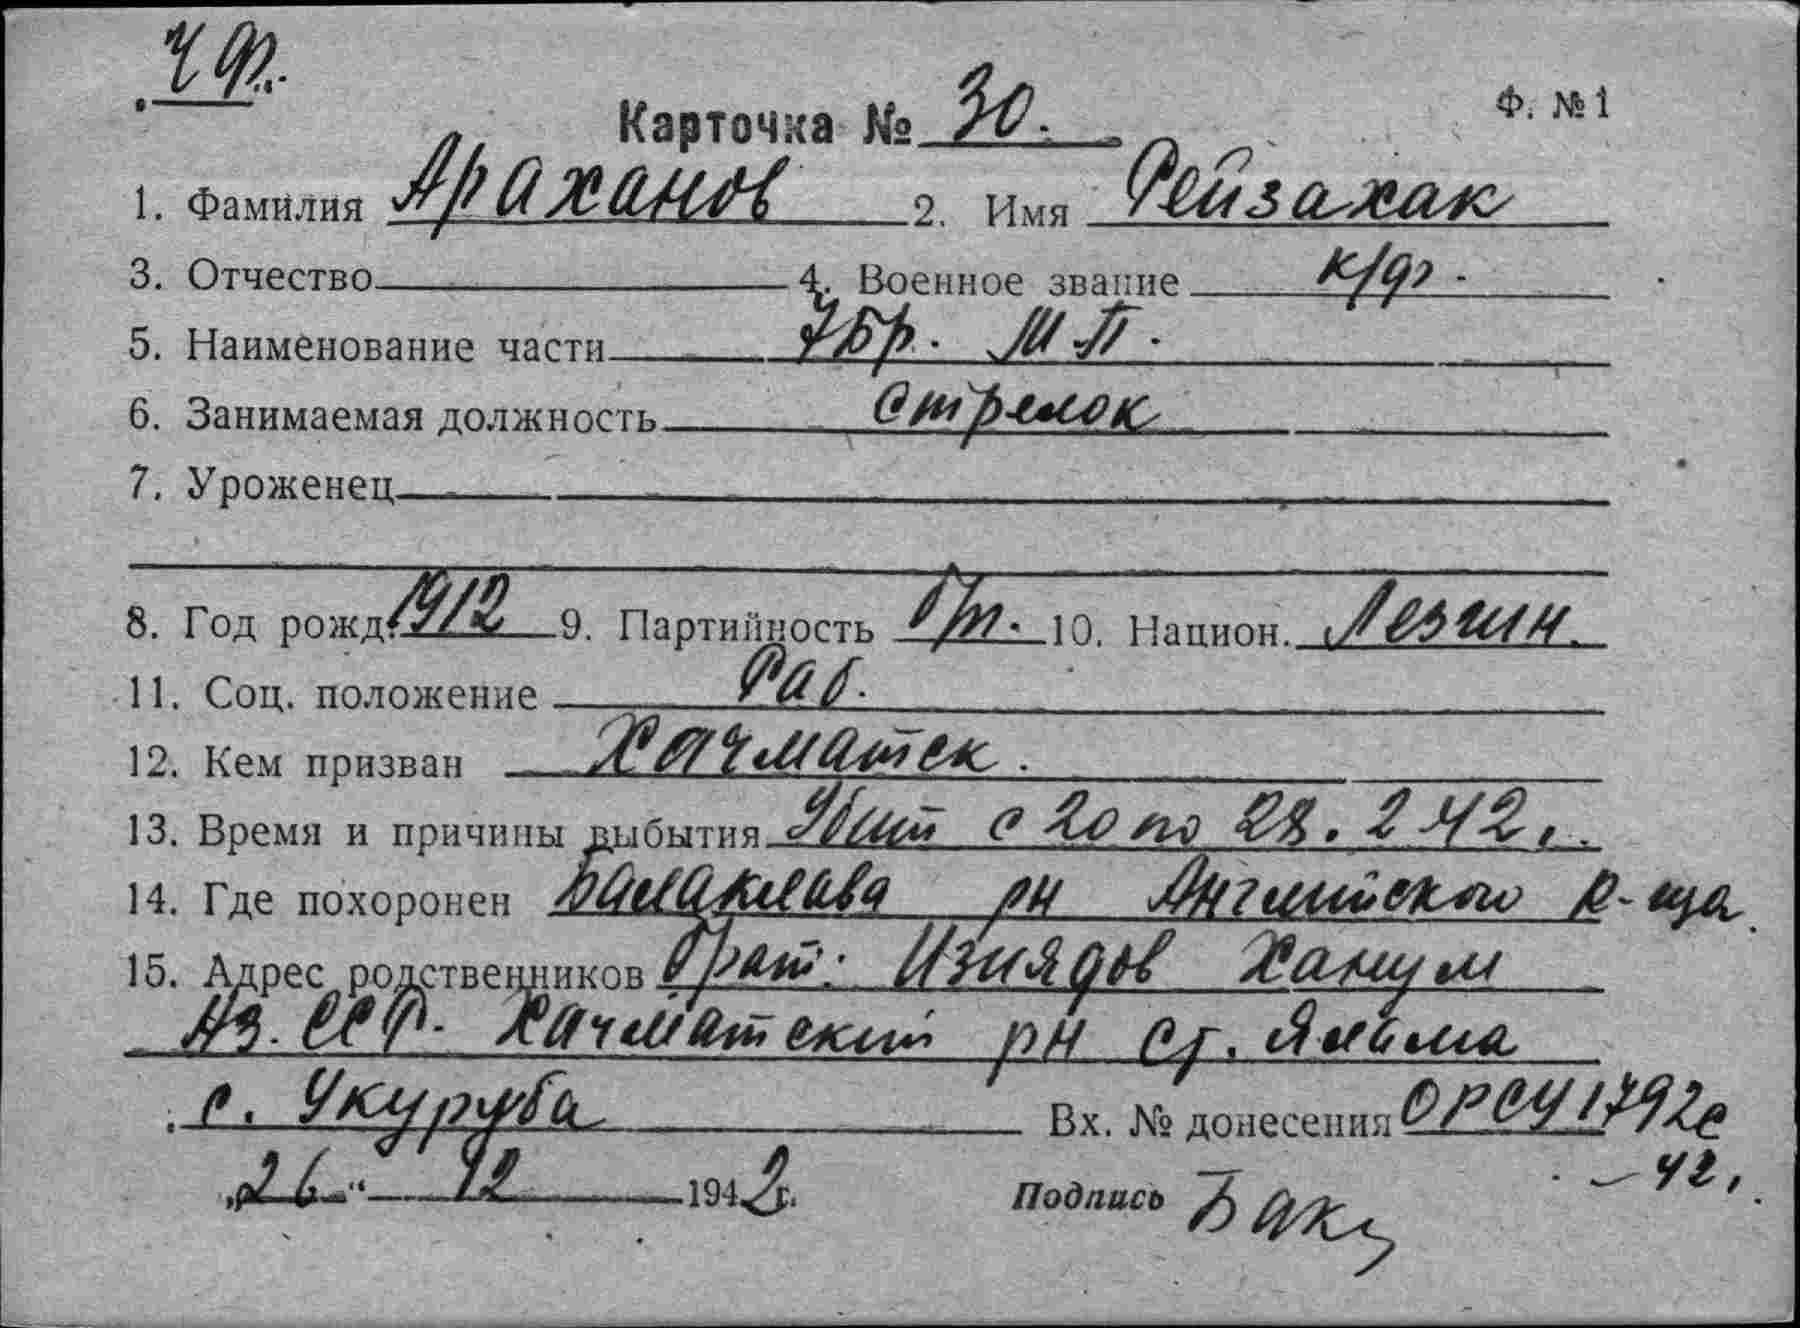 ЧФ.
Карточка № 30.
Ф. № 1
1. Фамилия Араханов 2. Имя Рейзахак
3. Отчество 4. Военное звание к/фл -
5. Наименование части 7 Бр. МП.
6. Занимаемая должность Стрелок
7. Уроженец
8. Год рожд. 1912 9. Партийность б/п. 10. Национ. Лезгин.
11. Соц. положение Раб.
12. Кем призван Хачматск.
13. Время и причины выбытия Убит с 20 по 28. 2 42 г.
14. Где похоронен Балаклава рн Английского к-ща
15. Адрес родственников брат: Изиядов Ханум
Аз. ССР. Хачматский рн ст. Ялама
с. Укуруба Вх. № донесения ОРСУ 1792с
-42 г.
„26" 12 1942 г. Подпись